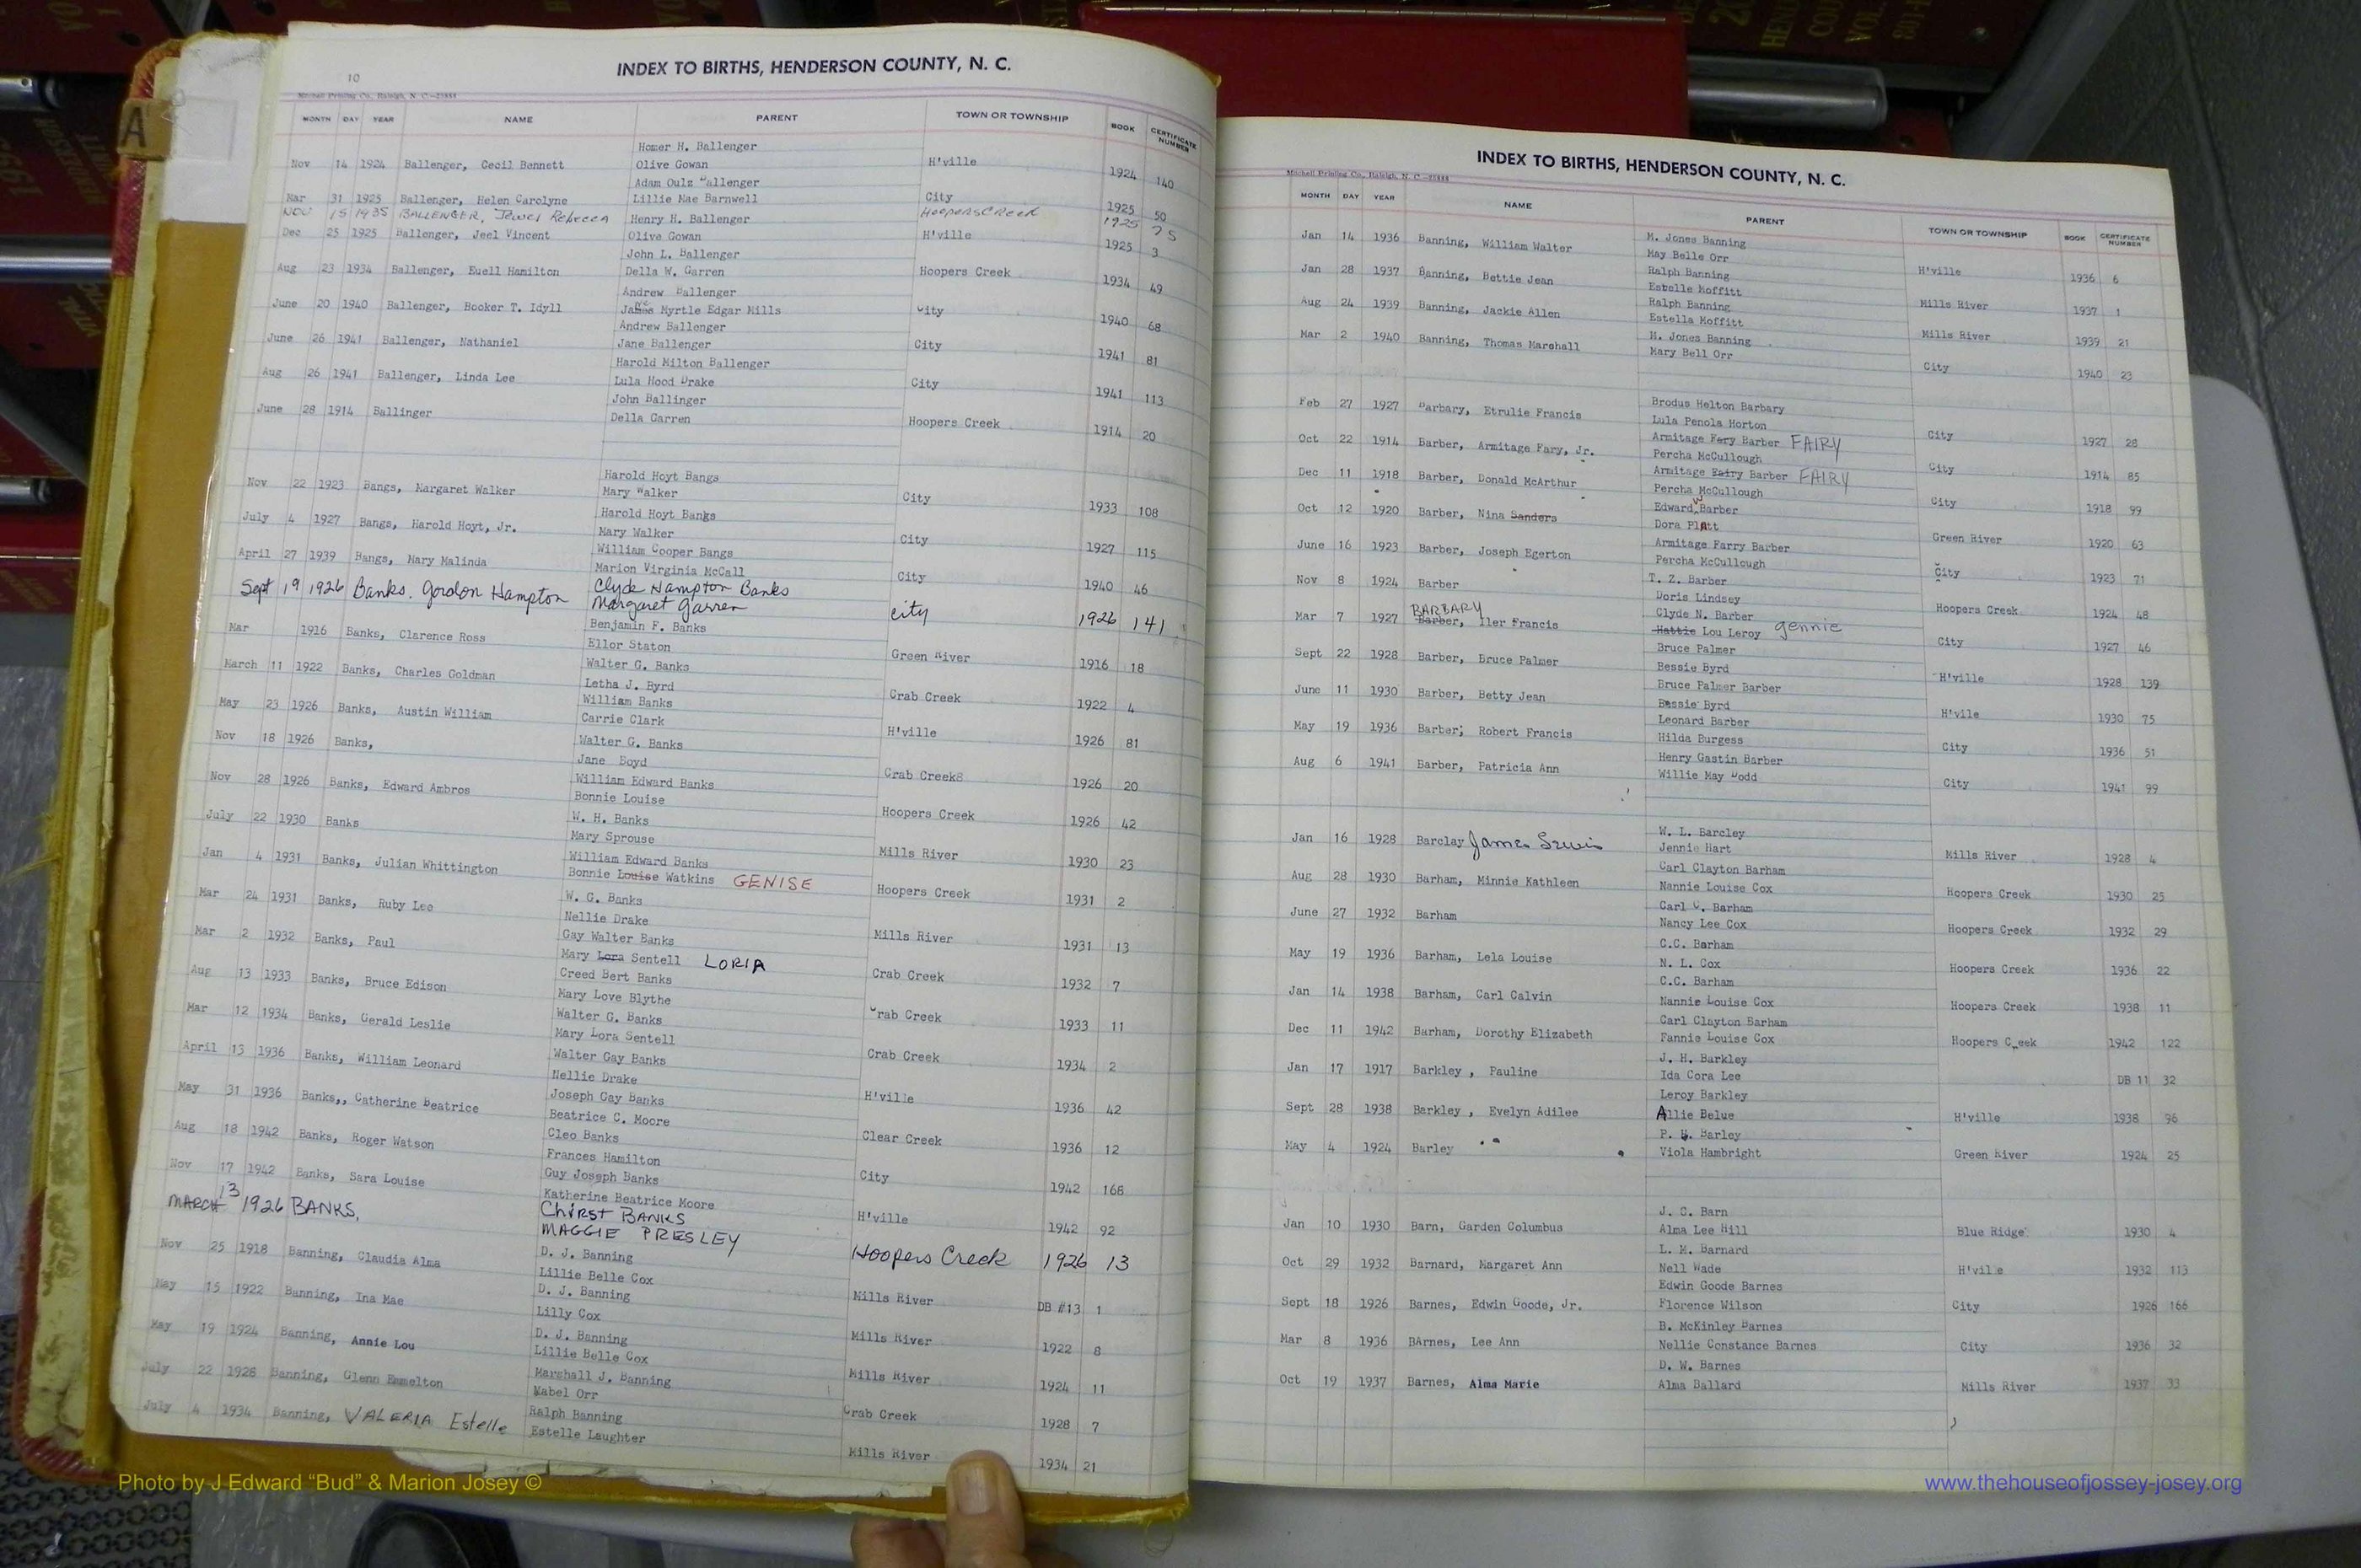 10
INDEX TO BIRTHS, HENDERSON COUNTY, N. C.
Mitchell Printing Co., Raleigh, N. C.
MONTH DAY YEAR NAME PARENT TOWN OR TOWNSHIP BOOK CERTIFICATE NUMBER
Homer H. Ballenger
Nov 14 1924 Ballenger, Cecil Bennett Olive Gowan H'ville 1924 140
Adam Oulz Ballenger
Mar 31 1925 Ballenger, Helen Carolyne Lillie Mae Barnwell City 1925 50
NOV 15 1935 BALLENGER, Jewel Rebecca Henry H. Ballenger HoopersCreek 1935 75
Dec 25 1925 Ballenger, Jeel Vincent Olive Gowan H'ville 1925 3
John L. Ballenger
Aug 23 1934 Ballenger, Euell Hamilton Della W. Garren Hoopers Creek 1934 49
Andrew Ballenger
June 20 1940 Ballenger, Booker T. Idyll James Myrtle Edgar Mills City 1940 68
Andrew Ballenger
June 26 1941 Ballenger, Nathaniel Jane Ballenger City 1941 81
Harold Milton Ballenger
Aug 26 1941 Ballenger, Linda Lee Lula Hood Drake City 1941 113
John Ballinger
June 28 1914 Ballinger Della Garren Hoopers Creek 1914 20
Harold Hoyt Bangs
Nov 22 1923 Bangs, Margaret Walker Mary Walker City 1933 108
Harold Hoyt Bangs
July 4 1927 Bangs, Harold Hoyt, Jr. Mary Walker City 1927 115
William Cooper Bangs
April 27 1939 Bangs, Mary Malinda Marion Virginia McCall City 1940 46
Clyde Hampton Banks
Sept 19 1926 Banks. Gordon Hampton Margaret Garren City 1926 141
Benjamin F. Banks
Mar 1916 Banks, Clarence Ross Ellor Staton Green River 1916 18
Walter G. Banks
March 11 1922 Banks, Charles Goldman Letha J. Byrd Crab Creek 1922 4
William Banks
May 23 1926 Banks, Austin William Carrie Clark H'ville 1926 81
Walter G. Banks
Nov 18 1926 Banks, Jane Boyd Crab Creek8 1926 20
William Edward Banks
Nov 28 1926 Banks, Edward Ambros Bonnie Louise Hoopers Creek 1926 42
W. H. Banks
July 22 1930 Banks Mary Sprouse Mills River 1930 23
William Edward Banks
Jan 4 1931 Banks, Julian Whittington Bonnie Louise Watkins GENISE Hoopers Creek 1931 2
W. G. Banks
Mar 24 1931 Banks, Ruby Lee Nellie Drake Mills River 1931 13
Gay Walter Banks
Mar 2 1932 Banks, Paul Mary Lora Sentell LORIA Crab Creek 1932 7
Creed Bert Banks
Aug 13 1933 Banks, Bruce Edison Mary Love Blythe Crab Creek 1933 11
Walter G. Banks
Mar 12 1934 Banks, Gerald Leslie Mary Lora Sentell Crab Creek 1934 2
Walter Gay Banks
April 13 1936 Banks, William Leonard Nellie Drake H'ville 1936 42
Joseph Gay Banks
May 31 1936 Banks,, Catherine Beatrice Beatrice C. Moore Clear Creek 1936 12
Cleo Banks
Aug 18 1942 Banks, Roger Watson Frances Hamilton City 1942 168
Guy Joseph Banks
Nov 17 1942 Banks, Sara Louise Katherine Beatrice Moore H'ville 1942 92
CHIRST BANKS
MARCH 13 1926 BANKS, MAGGIE PRESLEY Hoopers Creek 1926 13
D. J. Banning
Nov 25 1918 Banning, Claudia Alma Lillie Belle Cox Mills River DB #13 1
D. J. Banning
May 15 1922 Banning, Ina Mae Lilly Cox Mills River 1922 8
D. J. Banning
May 19 1924 Banning, Annie Lou Lillie Belle Cox Mills River 1924 11
Marshall J. Banning
July 22 1928 Banning, Glenn Emmelton Mabel Orr Crab Creek 1928 7
Ralph Banning
July 4 1934 Banning, VALERIA Estelle Estelle Laughter Mills River 1934 21
INDEX TO BIRTHS, HENDERSON COUNTY, N. C.
Mitchell Printing Co., Raleigh, N. C.
MONTH DAY YEAR NAME PARENT TOWN OR TOWNSHIP BOOK CERTIFICATE NUMBER
M. Jones Banning
Jan 14 1936 Banning, William Walter May Belle Orr H'ville 1936 6
Ralph Banning
Jan 28 1937 Banning, Bettie Jean Estelle Moffitt Mills River 1937 1
Ralph Banning
Aug 24 1939 Banning, Jackie Allen Estella Moffitt Mills River 1939 21
H. Jones Banning
Mar 2 1940 Banning, Thomas Marshall Mary Bell Orr City 1940 23
Brodus Helton Barbary
Feb 27 1927 Barbary, Etrulie Francis Lula Penola Horton City 1927 28
Armitage Fary Barber FAIRY
Oct 22 1914 Barber, Armitage Fary, Jr. Percha McCullough City 1914 85
Armitage Fairy Barber FAIRY
Dec 11 1918 Barber, Donald McArthur Percha McCullough City 1918 99
Edward W Barber
Oct 12 1920 Barber, Nina Sanders Dora Platt Green River 1920 63
Armitage Farry Barber
June 16 1923 Barber, Joseph Egerton Percha McCullough City 1923 71
T. Z. Barber
Nov 8 1924 Barber Doris Lindsey Hoopers Creek 1924 48
BARBARY Clyde N. Barber
Mar 7 1927 Barber, Iler Francis Hattie Lou Leroy Gennie City 1927 46
Bruce Palmer
Sept 22 1928 Barber, Bruce Palmer Bessie Byrd H'ville 1928 139
Bruce Palmer Barber
June 11 1930 Barber, Betty Jean Bessie Byrd H'vile 1930 75
Leonard Barber
May 19 1936 Barber; Robert Francis Hilda Burgess City 1936 51
Henry Gastin Barber
Aug 6 1941 Barber, Patricia Ann Willie May Dodd City 1941 99
W. L. Barcley
Jan 16 1928 Barclay James Lewis Jennie Hart Mills River 1928 4
Carl Clayton Barham
Aug 28 1930 Barham, Minnie Kathleen Nannie Louise Cox Hoopers Creek 1930 25
Carl C. Barham
June 27 1932 Barham Nancy Lee Cox Hoopers Creek 1932 29
C.C. Barham
May 19 1936 Barham, Lela Louise N. L. Cox Hoopers Creek 1936 22
C.C. Barham
Jan 14 1938 Barham, Carl Calvin Nannie Louise Cox Hoopers Creek 1938 11
Carl Clayton Barham
Dec 11 1942 Barham, Dorothy Elizabeth Fannie Louise Cox Hoopers Creek 1942 122
J. H. Barkley
Jan 17 1917 Barkley , Pauline Ida Cora Lee DB 11 32
Leroy Barkley
Sept 28 1938 Barkley , Evelyn Adilee Allie Belue H'ville 1938 96
P. H. Barley
May 4 1924 Barley Viola Hambright Green River 1924 25
J. C. Barn
Jan 10 1930 Barn, Garden Columbus Alma Lee Hill Blue Ridge 1930 4
L. M. Barnard
Oct 29 1932 Barnard, Margaret Ann Nell Wade H'ville 1932 113
Edwin Goode Barnes
Sept 18 1926 Barnes, Edwin Goode, Jr. Florence Wilson City 1926 166
B. McKinley Barnes
Mar 8 1936 BArnes, Lee Ann Nellie Constance Barnes City 1936 32
D. W. Barnes
Oct 19 1937 Barnes, Alma Marie Alma Ballard Mills River 1937 33
A
Photo by J Edward “Bud” & Marion Josey ©
www.thehouseofjossey-josey.org